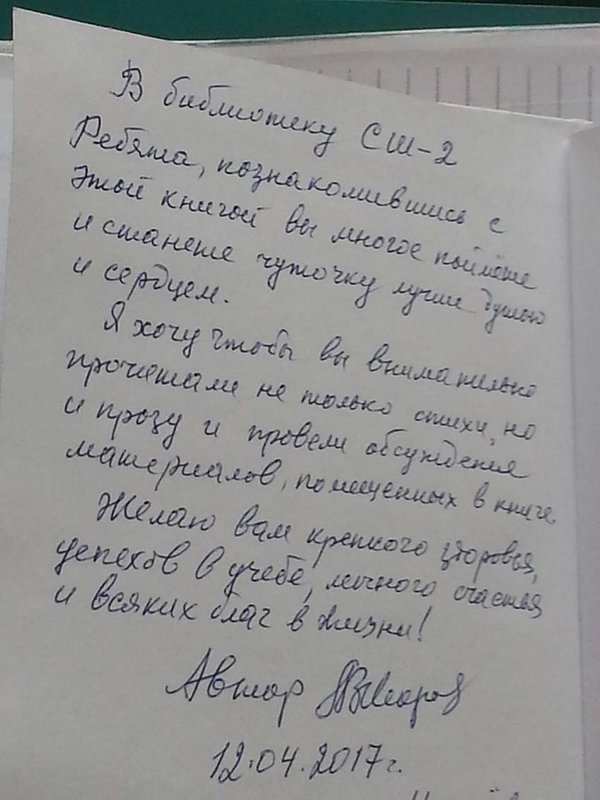 В библиотеку СШ-2
Ребята, познакомившись с
этой книгой вы многое поймёте
и станете чуточку лучше душою
и сердцем.
Я хочу чтобы вы внимательно
прочитали не только стихи, но
и прозу и провели обсуждения
материалов, помещенных в книге.
Желаю вам крепкого здоровья,
успехов в учебе, личного счастья
и всяких благ в жизни!
Автор
12.04.2017г.